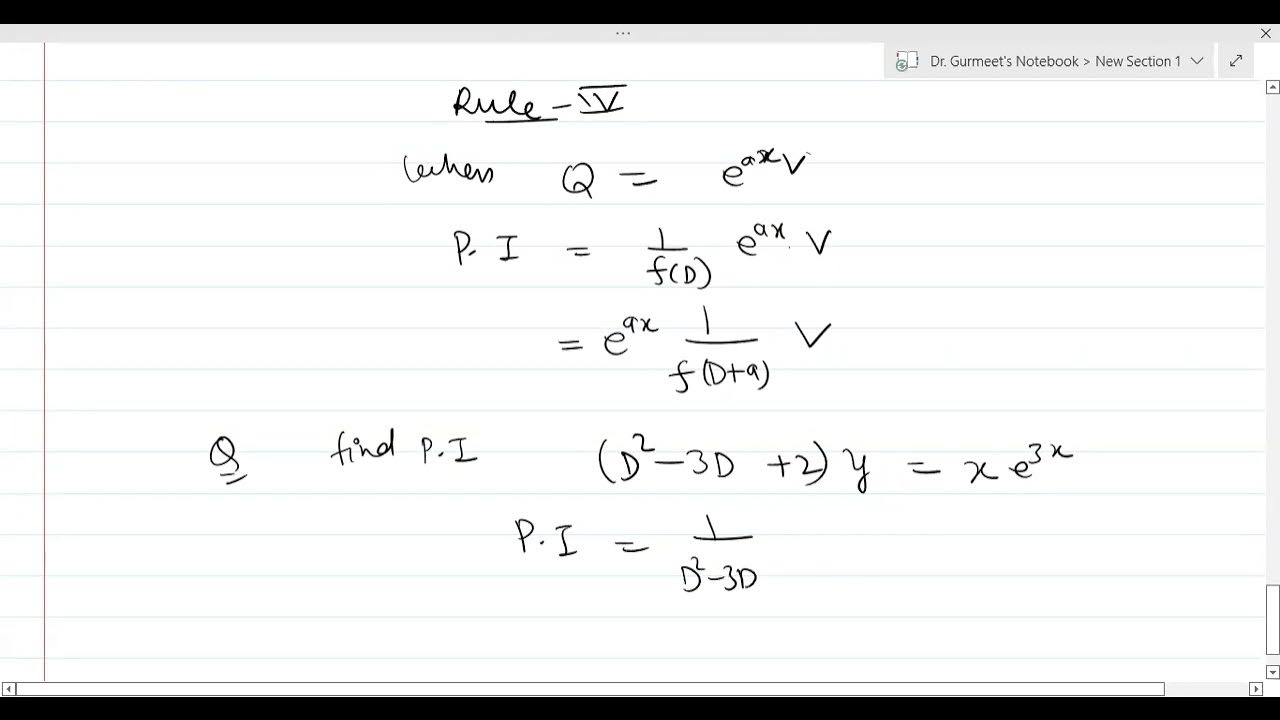 Dr. Gurmeet's Notebook > New Section 1
Rule - IV
When Q = e^{ax} V
P. I = \frac{1}{f(D)} e^{ax} . V
= e^{ax} \frac{1}{f(D+a)} V
Q find P.I (D^2 - 3D + 2) y = x e^{3x}
P. I = \frac{1}{D^2 - 3D}